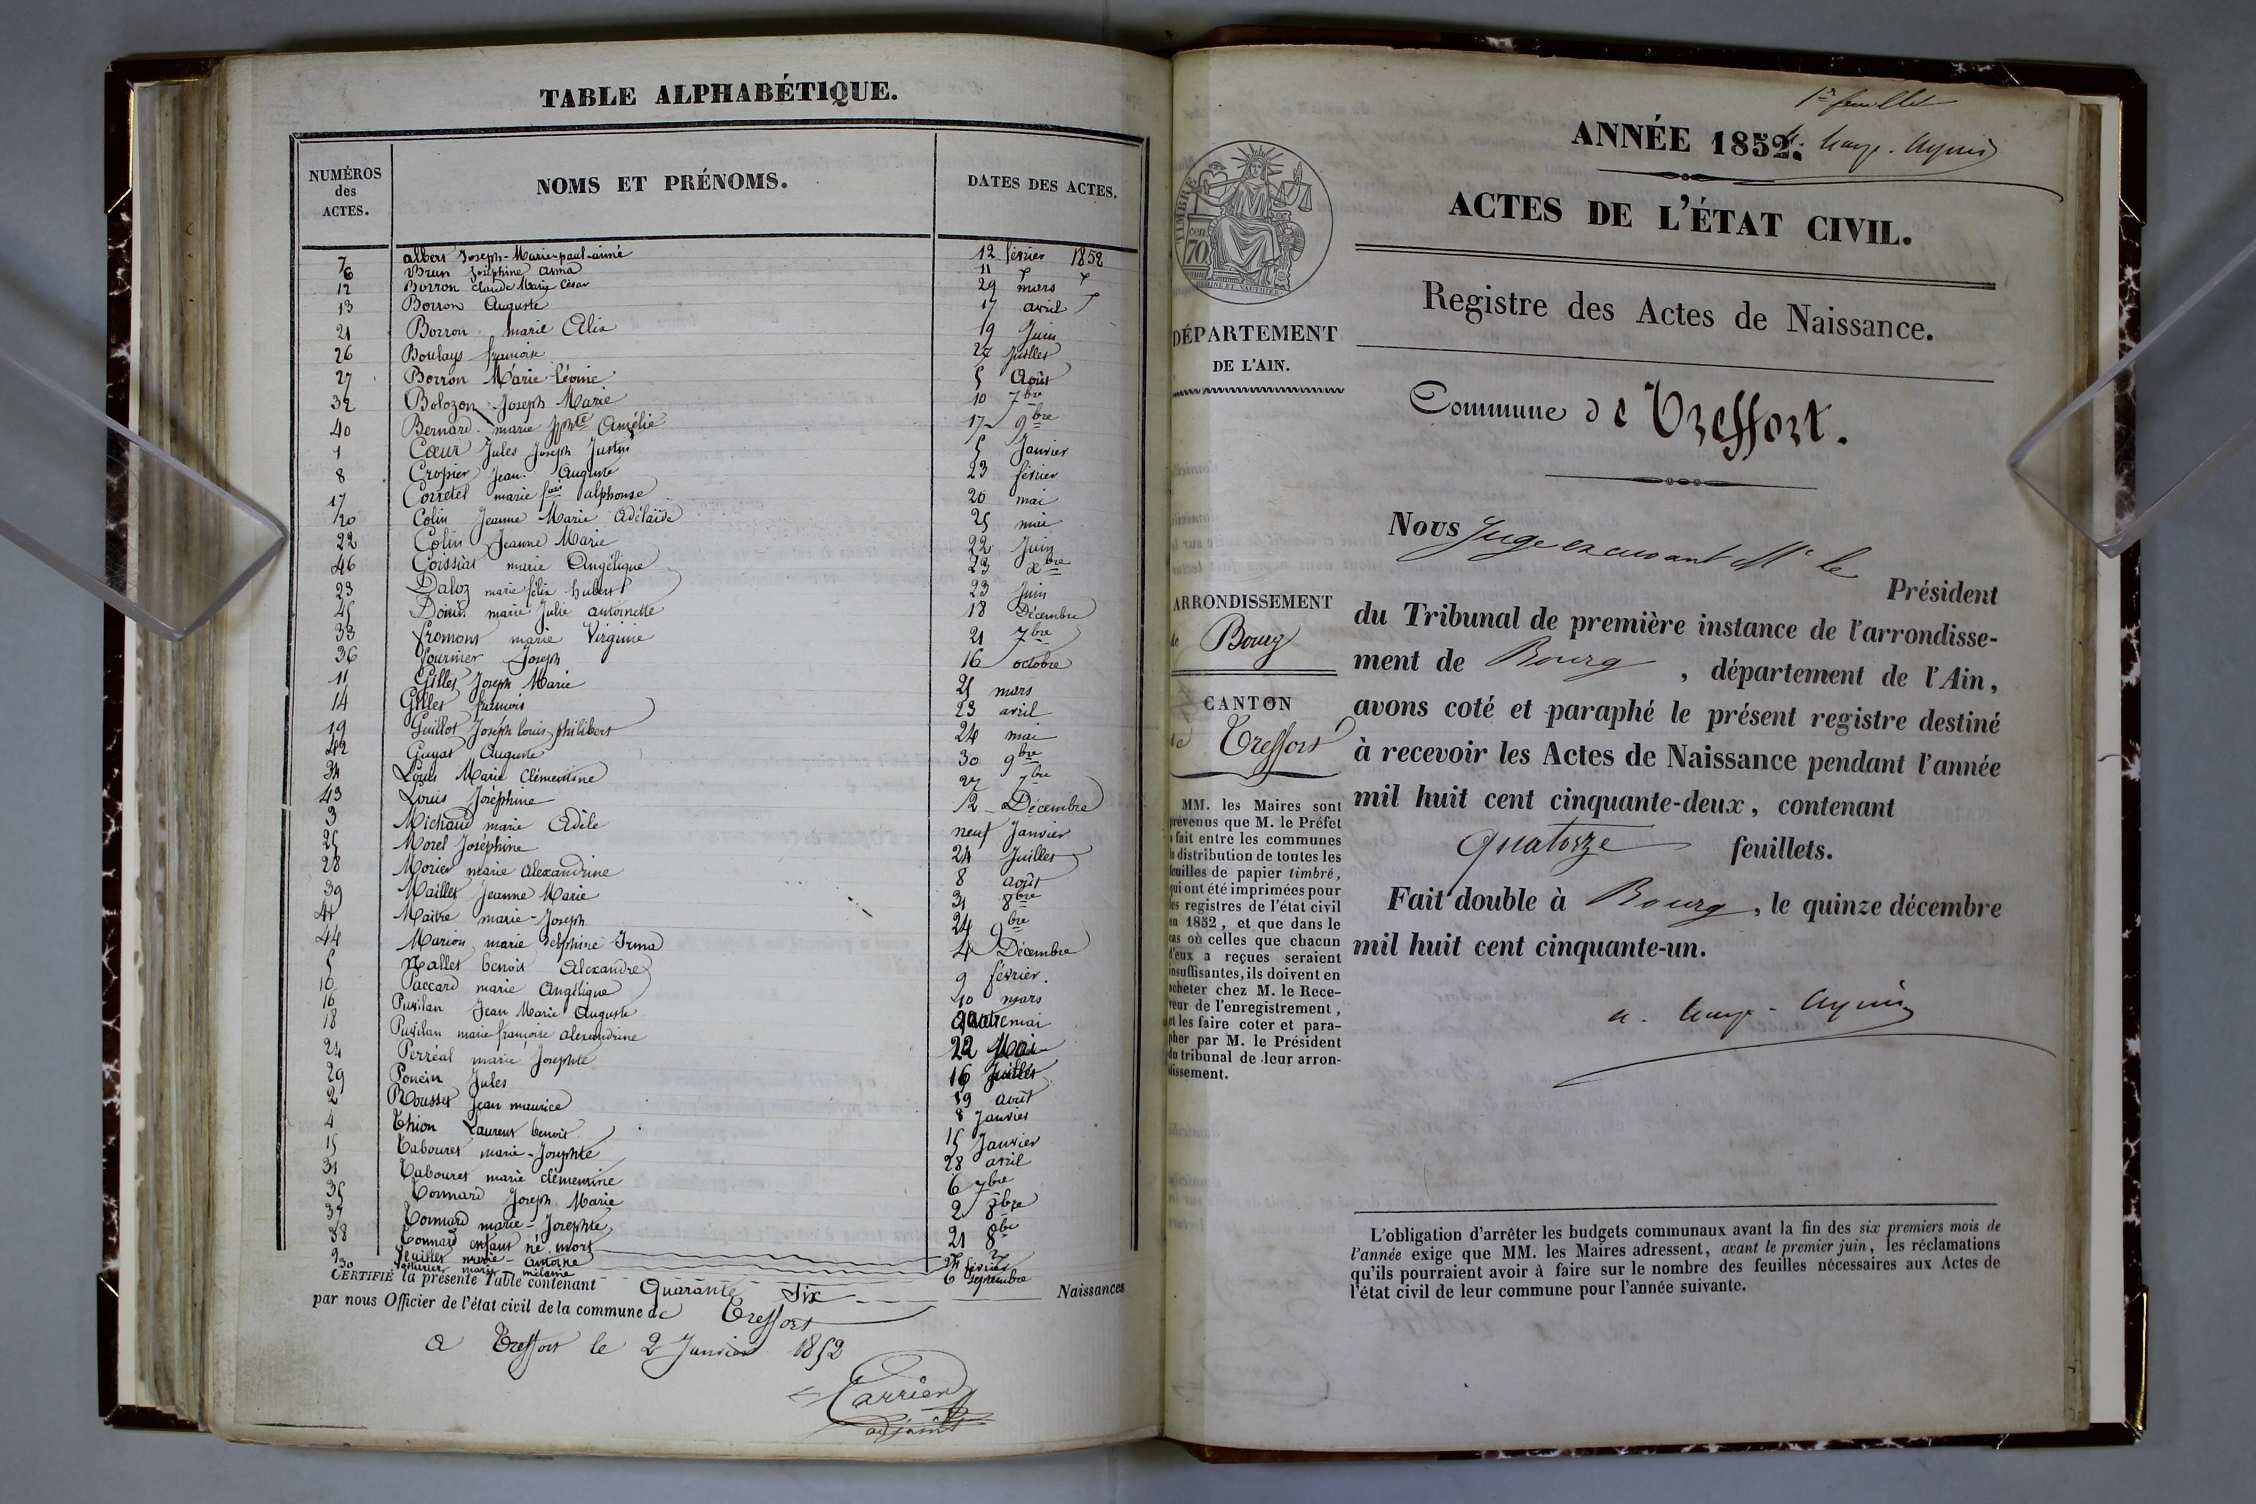 TABLE ALPHABÉTIQUE.
NUMÉROS des ACTES. NOMS ET PRÉNOMS. DATES DES ACTES.
7 albert Joseph-Marie-paul-aimé 12 février 1852
6 Brun Joséphine 11
12 Borron Claude Marie César 29 mars
13 Borron Auguste 17 avril
21 Borron marie Alix 19 Juin
26 Boulays françoise 27 Juillet
27 Borron Marie Léonie 5 Août
32 Bolozon Joseph Marie 10 7bre
40 Bernard marie Jphte Amélie 17 9bre
1 Cœur Jules Joseph Justin 5 Janvier
8 Cropier Jean Auguste 23 février
17 Corretel marie alphonse 20 mai
20 Colin Jeanne Marie Adélaïde 25 mai
22 Colin Jeanne Marie 22 Juin
46 Goissiat marie Angélique 23 xbre
23 Daloz marie félix hubert 23 Juin
45 marie Julie antoinette 18 Décembre
33 fromont marie Virginie 21 7bre
36 fournier Joseph 16 octobre
11 Gillet Joseph Marie 25 mars
14 Gillet françois 23 avril
19 Guillot Joseph Louis philibert 24 mai
42 Guyat Auguste 30 9bre
34 Louis Marie Clémentine 27 7bre
43 Louis Joséphine 2 Décembre
3 Michaud marie Adèle neuf Janvier
25 Morel Joséphine 24 Juillet
28 Morier marie Alexandrine 8 août
39 Maillet Jeanne Marie 31 8bre
41 Maitre marie-Joseph 24 9bre
44 Marion marie Delphine Irma 4 Décembre
5 Nallet benoit Alexandre 9 février.
10 Paccard marie Angélique 10 mars
16 Puvilan Jean Marie Auguste quatre mai
18 Puvilan marie françoise alexandrine 22 Mai
24 Perréal marie Josephte 16 Juillet
29 Poncin Jules 19 août
2 Rousset Jean maurice 8 Janvier
4 Thion Laurent benoit 15 Janvier
15 Tabouret marie-Josephte 28 avril
31 Tabouret marie clémentine 6 7bre
35 Tonnard Joseph Marie 2 8bre
37 Tonnard marie-Josephte 21 8bre
38 Tonnard enfant né mort
9 marie-Antoine février
30 marie mélanie 6 septembre
CERTIFIÉ la présente Table contenant Quarante Six Naissances
par nous Officier de l'état civil de la commune de Treffort
a Treffort le 2 Janvier 1852
Carrier
adjoint
1er feuillet
ANNÉE 1852.
ACTES DE L'ÉTAT CIVIL.
TIMBRE
70 cen
Registre des Actes de Naissance.
DÉPARTEMENT
DE L'AIN.
Commune de Treffort.
Nous Juge excusant Mr le Président
du Tribunal de première instance de l'arrondisse-
ment de Bourg, département de l'Ain,
avons coté et paraphé le présent registre destiné
à recevoir les Actes de Naissance pendant l'année
mil huit cent cinquante-deux, contenant
quatorze feuillets.
Fait double à Bourg, le quinze décembre
mil huit cent cinquante-un.
ARRONDISSEMENT
de Bourg
CANTON
de Treffort
MM. les Maires sont
prévenus que M. le Préfet
a fait entre les communes
la distribution de toutes les
feuilles de papier timbré,
qui ont été imprimées pour
les registres de l'état civil
en 1852, et que dans le
cas où celles que chacun
d'eux a reçues seraient
insuffisantes, ils doivent en
acheter chez M. le Rece-
veur de l'enregistrement,
et les faire coter et para-
pher par M. le Président
du tribunal de leur arron-
dissement.
L'obligation d'arrêter les budgets communaux avant la fin des six premiers mois de
l'année exige que MM. les Maires adressent, avant le premier juin, les réclamations
qu'ils pourraient avoir à faire sur le nombre des feuilles nécessaires aux Actes de
l'état civil de leur commune pour l'année suivante.